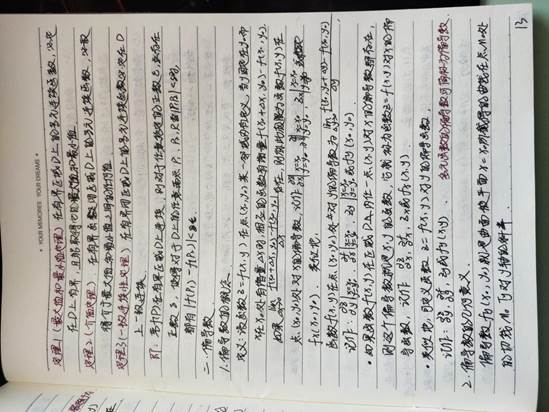 YOUR MEMORIES YOUR DREAMS
定理1(最大值和最小值定理) 在有界闭区域D上的多元连续函数,必定
在D上有界,且能取得它的最大值和最小值.
定理2(介值定理) 在有界闭区域D上的多元连续函数,必取
得介于最大值和最小值之间的任何值.
定理3(一致连续性定理) 在有界闭区域D上的多元连续函数必定在D
上一致连续.
即:若f(P)在有界闭区域D上连续,则对于任意给定的正数ε,总存在
正数δ,使得对于D上的任意两点P₁、P₂,只要|P₁P₂|<δ时,
都有|f(P₁)-f(P₂)|<ε.
二. 偏导数
1. 偏导数的概念
定义:设函数z=f(x,y)在点(x₀,y₀)某一邻域内有定义,当y固定在y₀而
x在x₀处有增量Δx时,相应的函数有增量f(x₀+Δx,y₀)-f(x₀,y₀)
如果 lim Δx→0 f(x₀+Δx,y₀)-f(x₀,y₀)/Δx 存在,则称此极限为函数z=f(x,y)在
点(x₀,y₀)处对x的偏导数,记作
fx(x₀,y₀). 类似地,
函数z=f(x,y)在点(x₀,y₀)处对y的偏导数为 lim Δy→0 f(x₀,y₀+Δy)-f(x₀,y₀)/Δy
记作 或fy(x₀,y₀)
• 如果函数z=f(x,y)在区域D上每一点(x,y)处对x的偏导数都存在,
则这个偏导数就是x、y的函数,它就称为函数z=f(x,y)对x的偏
导函数,记作 ∂z/∂x, ∂f/∂x, zx或fx(x,y).
• 类似地,可定义函数z=f(x,y)对y的偏导函数,
记作: ∂z/∂y, ∂f/∂y, zy或fy(x,y) 多元函数的偏导函数可简称为偏导数
2. 偏导数的几何意义
偏导数fy(x₀,y₀)就是曲面被平面x=x₀所截得的曲线在点M₀处
的切线M₀Ty对y轴的斜率
13